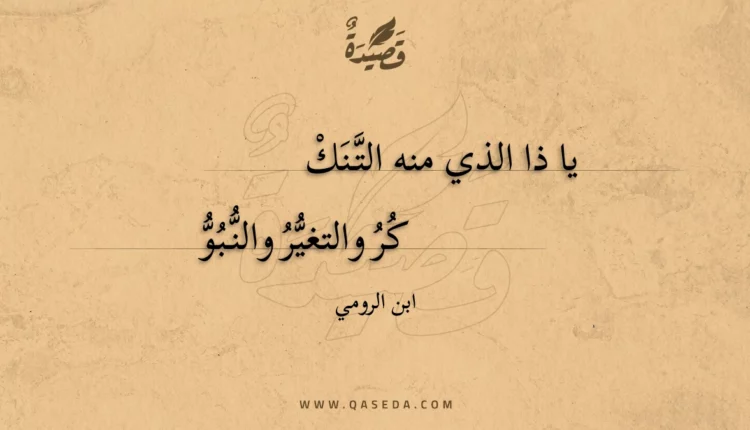 قَصِيدَةٌ
يا ذا الذي منه التَّنَكْ
كُرُ والتغيُّرُ والنُّبُوُّ
ابن الرومي
WWW.QASEDA.COM